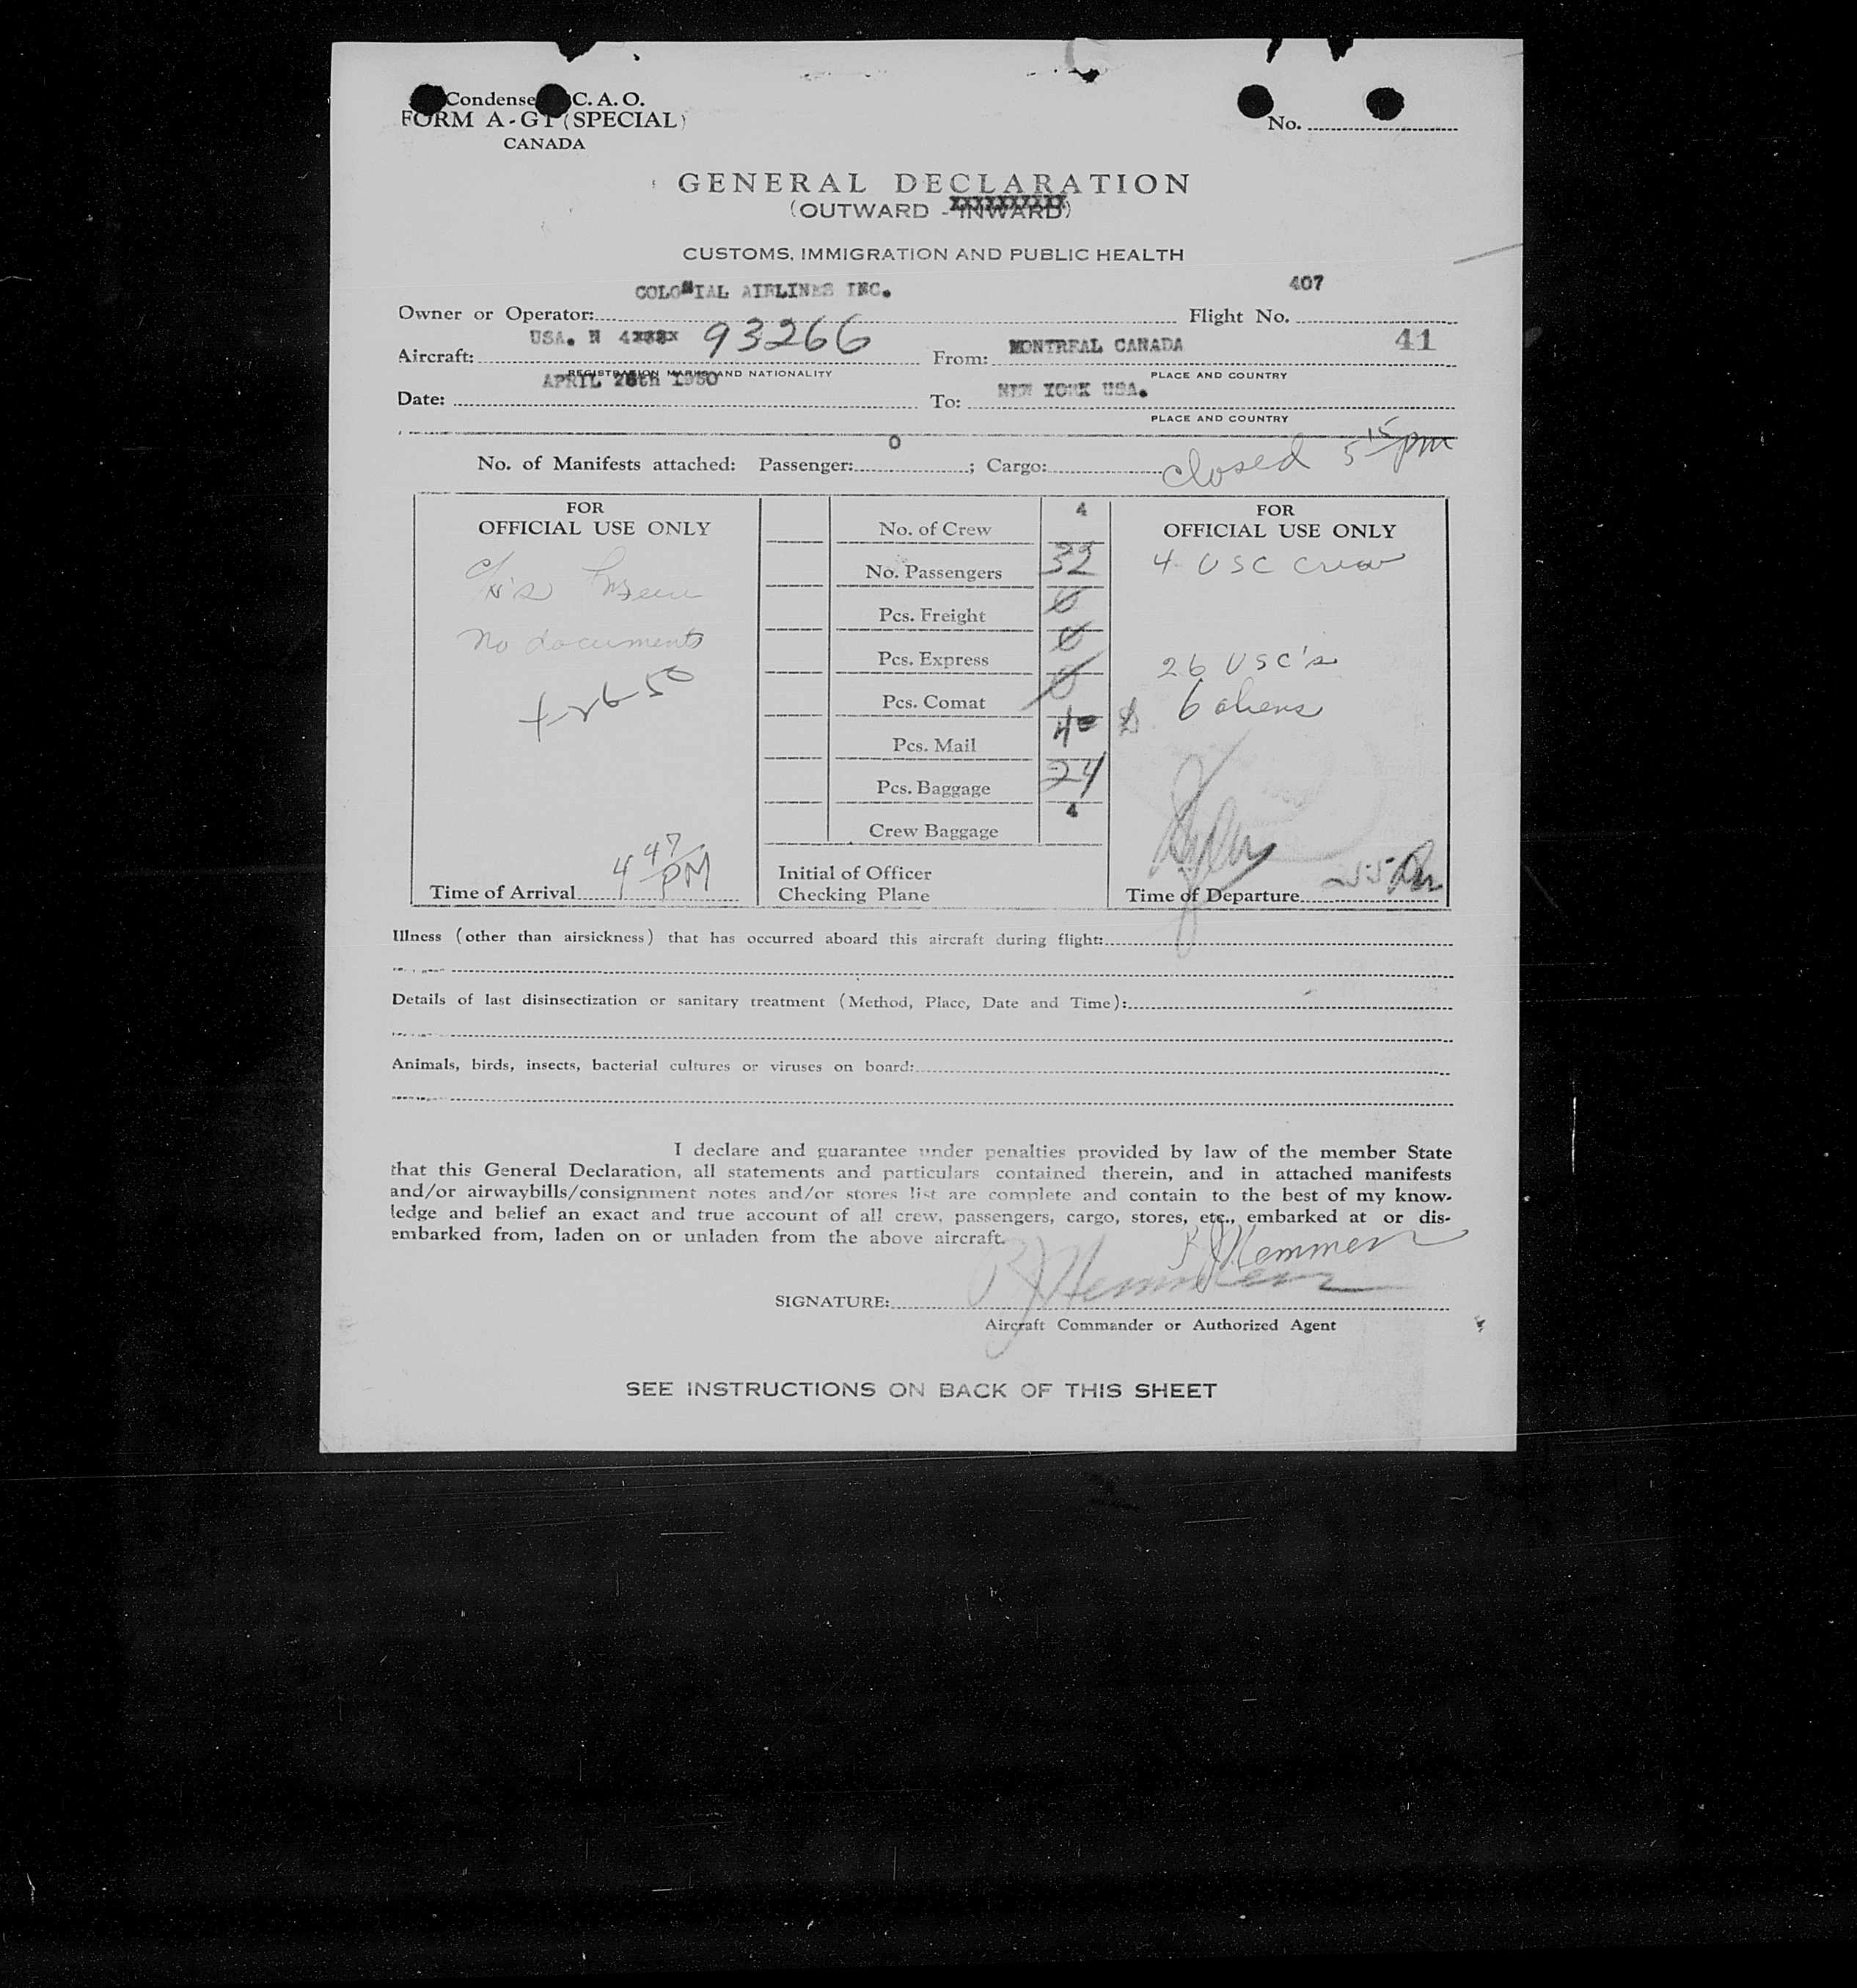 Condense C. A. O.
FORM A-G1 (SPECIAL)
CANADA
No.
GENERAL DECLARATION
(OUTWARD - INWARD)
CUSTOMS, IMMIGRATION AND PUBLIC HEALTH
COLONIAL AIRLINES INC.
407
Owner or Operator: Flight No.
USA. N 93266
MONTREAL CANADA
41
Aircraft: From:
REGISTRATION MARKS AND NATIONALITY PLACE AND COUNTRY
APRIL 26th 1950
NEW YORK USA.
Date: To:
PLACE AND COUNTRY
0
closed 5 15 pm
No. of Manifests attached: Passenger: ; Cargo:
FOR
OFFICIAL USE ONLY
no documents
4-26-50
4 47 PM
Time of Arrival
No. of Crew 4
No. Passengers 32
Pcs. Freight 0
Pcs. Express 0
Pcs. Comat 0
Pcs. Mail
Pcs. Baggage 24
Crew Baggage 4
Initial of Officer
Checking Plane
FOR
OFFICIAL USE ONLY
4 USC Crew
26 USC's
6 aliens
Time of Departure
Illness (other than airsickness) that has occurred aboard this aircraft during flight:
Details of last disinsectization or sanitary treatment (Method, Place, Date and Time):
Animals, birds, insects, bacterial cultures or viruses on board:
I declare and guarantee under penalties provided by law of the member State
that this General Declaration, all statements and particulars contained therein, and in attached manifests
and/or airwaybills/consignment notes and/or stores list are complete and contain to the best of my know-
ledge and belief an exact and true account of all crew, passengers, cargo, stores, etc., embarked at or dis-
embarked from, laden on or unladen from the above aircraft.
SIGNATURE:
Aircraft Commander or Authorized Agent
SEE INSTRUCTIONS ON BACK OF THIS SHEET